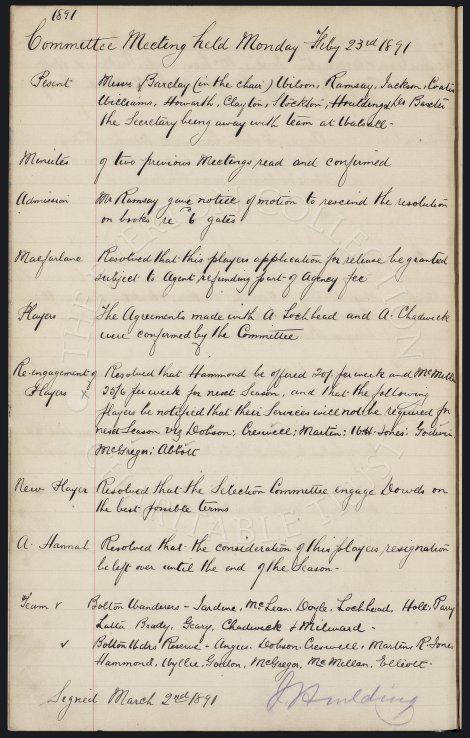 1891
Committee Meeting held Monday Feby 23rd 1891
Present Messrs Barclay (in the chair) Wilson, Ramsay, Jackson, Coates
Williams, Howarth, Clayton, Stockton, Houlding & Dr Baxter
the Secretary being away with team at Walsall.
Minutes of two previous Meetings read and confirmed
Admission Mr Ramsay gave notice of motion to rescind the resolution
on books re 6d gates
Macfarlane Resolved that this players application for release be granted
subject to Agent refunding part of Agency fee
Players The Agreements made with A. Lochhead and A. Chadwick
were confirmed by the Committee
Re-engagement of Resolved that Hammond be offered 20/- per week and McMillan
Players x 25/6 per week for next Season, and that the following
players be notified that their Services will not be required for
next Season viz Dobson; Creswell; Martin; W.H. Jones; Godwin
McGregor; Abbott
New Player Resolved that the Selection Committee engage Dowds on
the best possible terms
A. Hannah Resolved that the consideration of this players resignation
be left over until the end of the Season -
Team v Bolton Wanderers - Jardine, McLean, Doyle, Lochhead, Holt, Parry
Latta, Brady, Geary, Chadwick & Milward -
v Bolton Wdrs Reserve - Angus, Dobson, Creswell, Martin, R. Jones
Hammond, Wyllie, Gordon, McGregor, McMillan, Elliott -
Signed March 2nd 1891 J Houlding